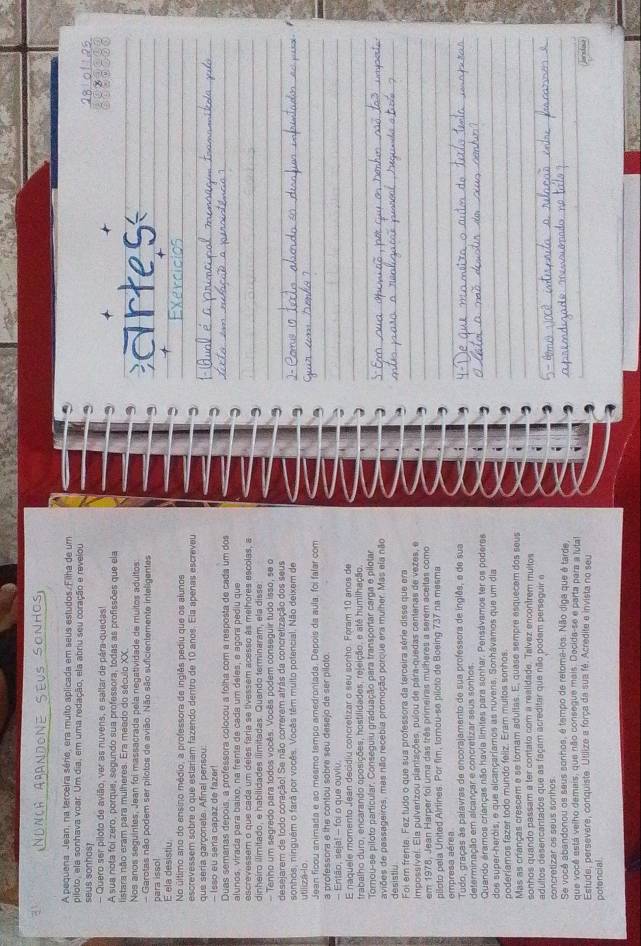 NUNCA ABANDONE SEUS SONHOS
A pequena Jean, na terceira série, era muito aplicada em seus estudos. Filha de um
piloto, ela sonhava voar. Um dia, em uma redação, ela abriu seu coração e revelou
seus sonhos:
- Quero ser piloto de avião, ver as nuvens, e saltar de pára-quedas!
A sua nota foi zero, porque, segundo sua professora, todas as profissões que ela
listara não eram para mulheres. Era meado do século XX.
Nos anos seguintes, Jean foi massacrada pela negatividade de muitos adultos:
- Garotas não podem ser pilotos de avião. Não são suficientemente inteligentes
para isso!
E ela desistiu.
No último ano do ensino médio, a professora de inglês pediu que os alunos
escrevessem sobre o que estariam fazendo dentro de 10 anos. Ela apenas escreveu
que seria garçonete. Afinal pensou:
- Isso eu seria capaz de fazer!
Duas semanas depois, a professora colocou a folha com a resposta de cada um dos
alunos, virada para baixo, na frente de cada um deles, e agora pediu que
escrevessem o que cada um deles faria se tivessem acesso às melhores escolas, a
dinheiro ilimitado, e habilidades ilimitadas. Quando terminaram, ela disse:
- Tenho um segredo para todos vocês. Vocês podem conseguir tudo isso, se o
desejarem de todo coração! Se não correrem atrás da concretização dos seus
sonhos, ninguém o fará por vocês. Vocês têm muito potencial. Não deixem de
utilizá-lo.
Jean ficou animada e ao mesmo tempo amedrontada. Depois da aula, foi falar com
a professora e lhe contou sobre seu desejo de ser piloto.
- Então, seja! - foi o que ouviu.
E naquele momento Jean decidiu concretizar o seu sonho. Foram 10 anos de
trabalho duro, encarando oposições, hostilidades, rejeição, e até humilhação.
Tornou-se piloto particular. Conseguiu graduação para transportar carga e pilotar
aviões de passageiros, mas não recebia promoção porque era mulher. Mas ela não
desistiu.
Foi em frente. Fez tudo o que sua professora da terceira série disse que era
impossível. Ela pulverizou plantações, pulou de pára-quedas centenas de vezes, e
em 1978, Jean Harper foi uma das três primeiras mulheres a serem aceitas como
piloto pela United Airlines. Por fim, tornou-se piloto de Boeing 737 na mesma
empresa aérea.
Tudo, graças às palavras de encorajamento de sua professora de inglês, e de sua
determinação em alcançar e concretizar seus sonhos.
Quando éramos crianças não havia limites para sonhar. Pensávamos ter os poderes
dos super-heróis, e que alcançaríamos as nuvens. Sonhávamos que um dia
poderíamos fazer todo mundo feliz. Eram muitos sonhos.
Mas as crianças crescem e se tornam adultas. E, quase sempre esquecem dos seus
sonhos quando passam a ter contato com a realidade. Talvez encontrem muitos
adultos desencantados que as façam acreditar que não podem perseguir e
concretizar os seus sonhos.
Se você abandonou os seus sonhos, é tempo de retomá-los. Não diga que é tarde,
que você está velho demais, que não conseguirá mais. Decida-se e parta para a luta!
Estude, persevere, conquiste. Utilize a força da sua fé. Acredite e invista no seu
potencial.
28/01/25
artes
Exercícios
1- Qual é a principal mensagem transmitida pelo
texto em relação a persistência?
2- Como o texto aborda os desafios enfrentados ao perse-
guir um sonho?
3- Em sua opinião, por que os sonhos são tão importan-
tes para a realização pessoal, segundo o texto?
4- De que maneira o autor do texto tenta inspirar
o leitor a não desistir dos seus sonhos?
5- Como você interpreta a relação entre fracassos e
aprendizado mencionada no texto?
jandaia